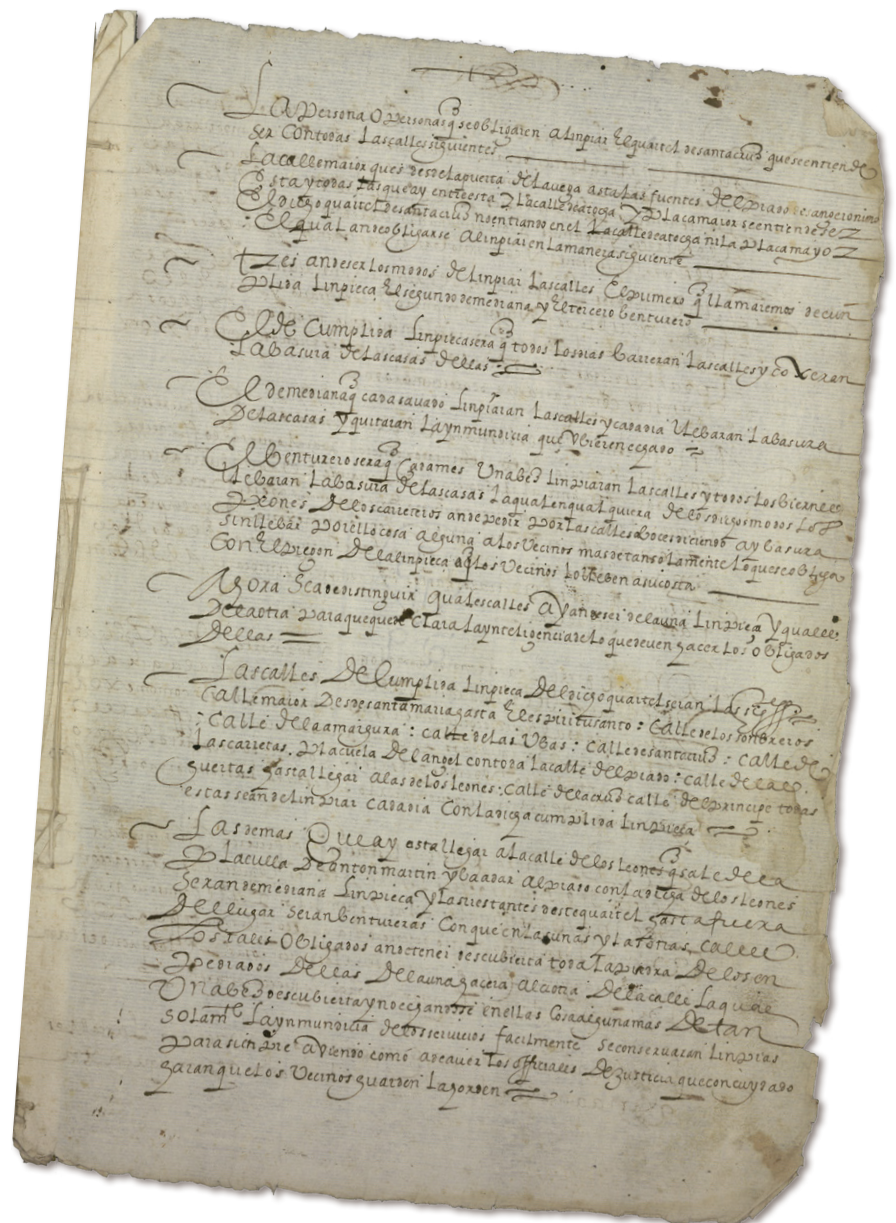 La persona o personas q̃ se obligaren a linpiar El quartel de santa cruz que se entiende
ser con todas las calles siguientes
La calle maior ques desde la puerta de la uega asta las fuentes del prado de san geronimo
Esta y todas las que ay entre esta y la calle de atocha y placa maior se entiende ser
El dicho quartel de santa cruz no entrando en el la calle de atocha ni la placa mayor
El qual an de obligarse a linpiar en la manera siguiente
tres an de ser los modos de linpiar las calles El primero q̃ llamaremos de cun
plida linpieca El segundo de mediana y El tercero benturero
El de cumplida linpieca sera q̃ todos los dias barreran las calles y coxeran
la basura de las casas dellas
El de mediana q̃ cada sauado linpiaran las calles y cada dia lleбaran la basura
de las casas y quitaran la ynmundicia que ubieren echado
El benturero sera q̃ cada mes una bez linpiaran las calles y todos los biernes
lleбaran la basura de las casas la qual en qualquiera de los dichos modos los
peones de los carreteros an de pedir por las calles a boces diciendo ay basura
sin lleбar por ello cosa alguna a los vecinos mas de tan solamente lo que se obligo
con El pregon de la linpieca q̃ los vecinos lo lleben a su costa
Agora se a de distinguir quales calles ayan de ser de la una linpieca y quales
de la otra para que quede clara la ynteligencia de lo que deven hacer los obligados
dellas
Las calles de cumplida linpieca del dicho quartel seran las sig̃
calle maior desde santa maria hasta El espiritu santo : calle de los sonbreros
: calle de la amargura : calle de las Ubas : calle de santa cruz : calle de
las carretas . placuela del angel con toda la calle del prado : calle de las
guertas hasta llegar a las de los leones : calle de la cruz calle del principe todas
estas se an de linpiar cada dia con la dicha cumplida linpieca
Las demas que ay asta llegar a la calle de los leones q̃ sale de la
placuela de anton martin y ba a dar al prado con la dicha de los leones
seran de mediana linpieca y las restantes deste quartel hasta fuera
del lugar seran bentureras con que en las unas y las otras calles
los tales obligados an de tener descubierta toda la piedra de los en
pedrados dellas de la una hacera a la otra de la calle la qual
una bez descubierta y no echandose en ellas cosa alguna mas de tan
solam.te la ynmundicia de los servicios facilmente se conservaran linpias
para sienpre aviendo como a de aver los officiales de justicia que con cuydado
haran que los vecinos guarden la horden